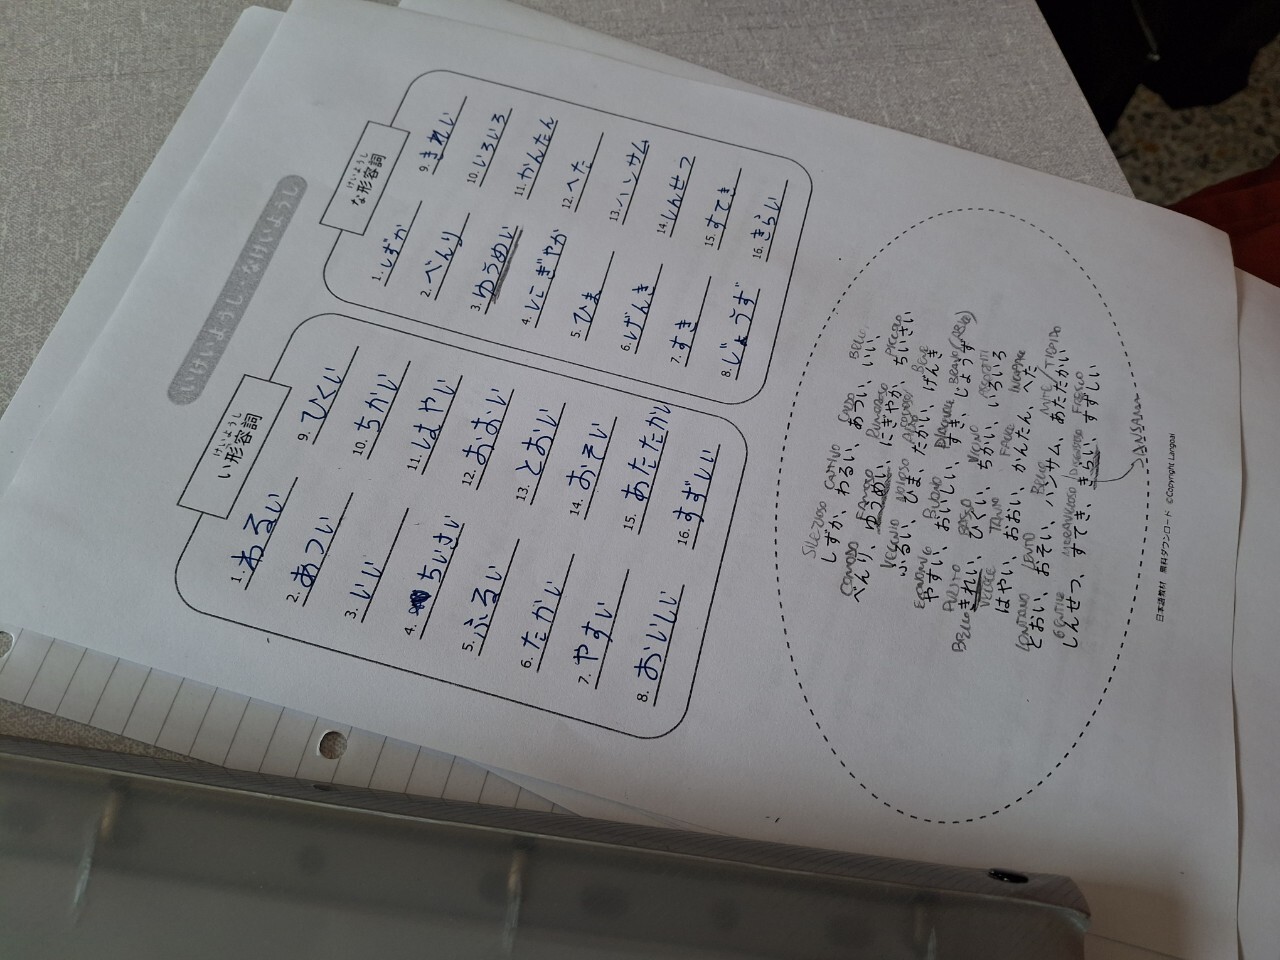 いけいようし・なけいようし
けいようし
い形容詞
1. わるい
2. あつい
3. いい
4. ちいさい
5. ふるい
6. たかい
7. やすい
8. おいしい
9. ひくい
10. ちかい
11. はやい
12. おおい
13. とおい
14. おそい
15. あたたかい
16. すずしい
けいようし
な形容詞
1. しずか
2. べんり
3. ゆうめい
4. にぎやか
5. ひま
6. げんき
7. すき
8. じょうず
9. きれい
10. いろいろ
11. かんたん
12. へた
13. ハンサム
14. しんせつ
15. すてき
16. きらい
CATTIVO CALDO BELLO
しずか、わるい、あつい、いい、
COMODO FAMOSO RUMOROSO PICCOLO
べんり、ゆうめい、にぎやか、ちいさい
VECCHIO ALTO BENE
ふるい、ひま、たかい、げんき
ECONOMICO BUONO PIACERE BRAVO
やすい、おいしい、すき、じょうず
BELLO PULITO BASSO VICINO
きれい、ひくい、ちかい、いろいろ
VELOCE TANTO FACILE
はやい、おおい、かんたん、へた
LONTANO LENTO BELLO MITE / TIEPIDO
とおい、おそい、ハンサム、あたたかい
GENTILE MERAVIGLIOSO FRESCO
しんせつ、すてき、きらい、すずしい
日本語教材 無料ダウンロード ©Copyright Langoal